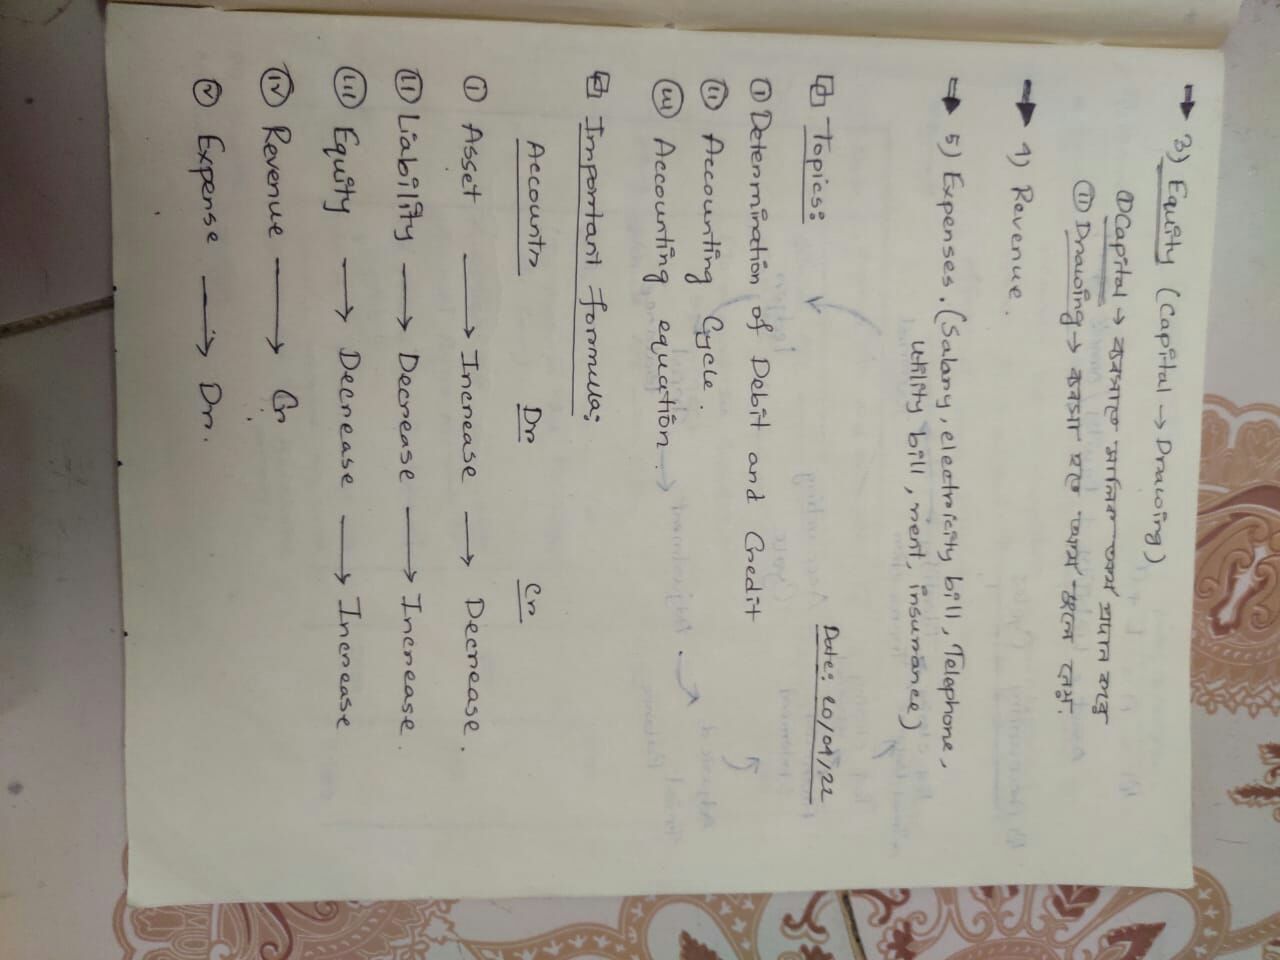 3) Equity (Capital → Drawing)
① Capital → ব্যবসাতে মালিক অর্থ প্রদান করে
⑪ Drawing → ব্যবসা হতে অর্থ তুলে নেয়.
4) Revenue.
5) Expenses. (Salary, electricity bill, Telephone,
Utility bill, rent, insurance)
Topics:
Date: 20/04/22
① Determination of Debit and Credit
⑪ Accounting Cycle.
(iii) Accounting equation.
Important formula:
Accounts Dr Cr
① Asset → Increase → Decrease.
(ii) Liability → Decrease → Increase.
(iii) Equity → Decrease → Increase
(iv) Revenue → Cr
(v) Expense → Dr.